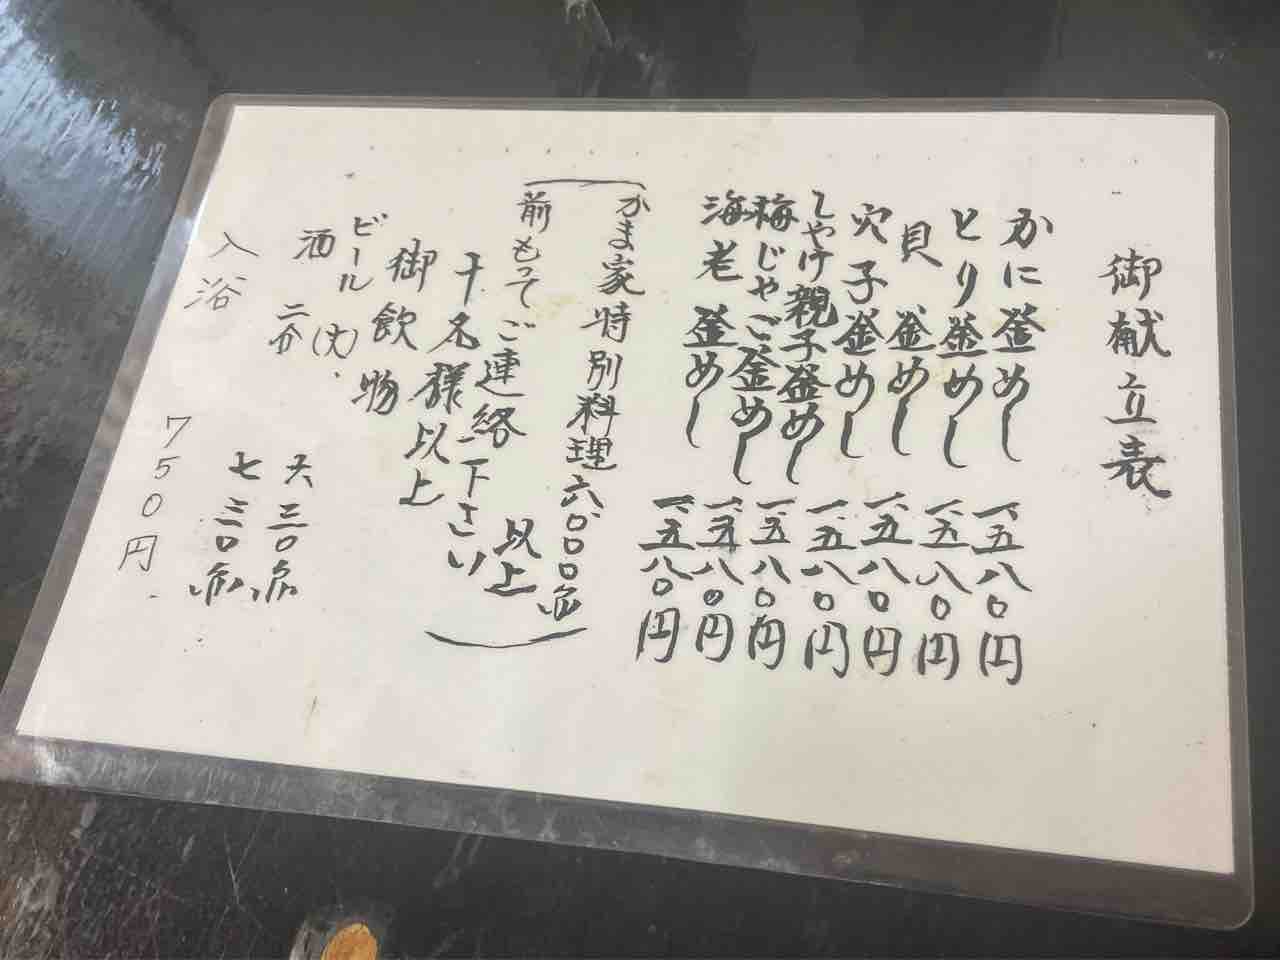 御献立表
かに釜めし 一、五八〇円
とり釜めし 一、五八〇円
貝 釜めし 一、五八〇円
穴子釜めし 一、五八〇円
しゃけ親子釜めし 一、五八〇円
梅じゃご釜めし 一、五八〇円
海老 釜めし 一、五八〇円
かま家特別料理六、〇〇〇円 以上
前もってご連絡下さい
十名様以上
御飲物
ビール (大) 六三〇円
酒 二合 七三〇円
入浴 750円